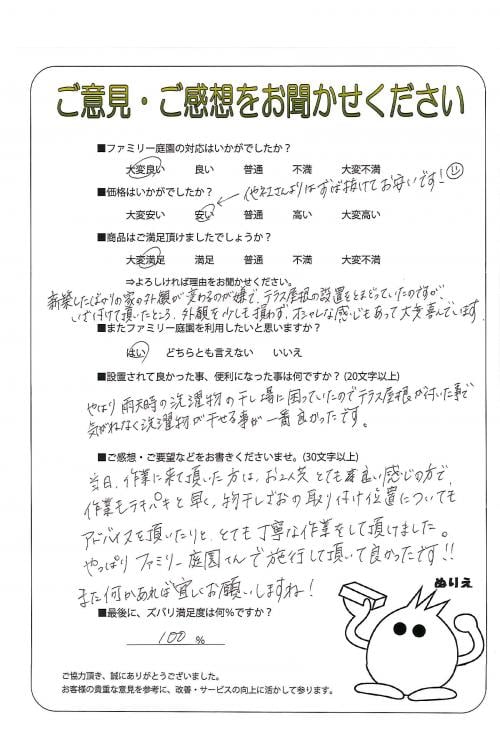 ご意見・ご感想をお聞かせください
■ファミリー庭園の対応はいかがでしたか？
大変良い 良い 普通 不満 大変不満
■価格はいかがでしたか？ ← 他社さんよりはずば抜けてお安いです！
大変安い 安い 普通 高い 大変高い
■商品はご満足頂けましたでしょうか？
大変満足 満足 普通 不満 大変不満
⇒よろしければ理由をお聞かせください。
新築したばかりの家の外観が変わるのが嫌で、テラス屋根の設置をとまどっていたのですが、
いざ付けて頂いたところ、外観を少しも損わず、オシャレな感じもあって大変喜んでいます。
■またファミリー庭園を利用したいと思いますか？
はい どちらとも言えない いいえ
■設置されて良かった事、便利になった事は何ですか？(20文字以上)
やはり雨天時の洗濯物の干し場に困っていたのでテラス屋根が付いた事で
気がねなく洗濯物が干せる事が一番良かったです。
■ご感想・ご要望などをお書きくださいませ。(30文字以上)
当日、作業に来て頂いた方は、お2人共とても良い感じの方で、
作業もテキパキと早く、物干しざおの取り付け位置についても
アドバイスを頂いたりと、とても丁寧な作業をして頂けました。
やっぱりファミリー庭園さんで施行して頂いて良かったです!!
また何かあれば宜しくお願いしますね！
ぬりえ
■最後に、ズバリ満足度は何％ですか？
100 %
ご協力頂き、誠にありがとうございました。
お客様の貴重な意見を参考に、改善・サービスの向上に活かして参ります。